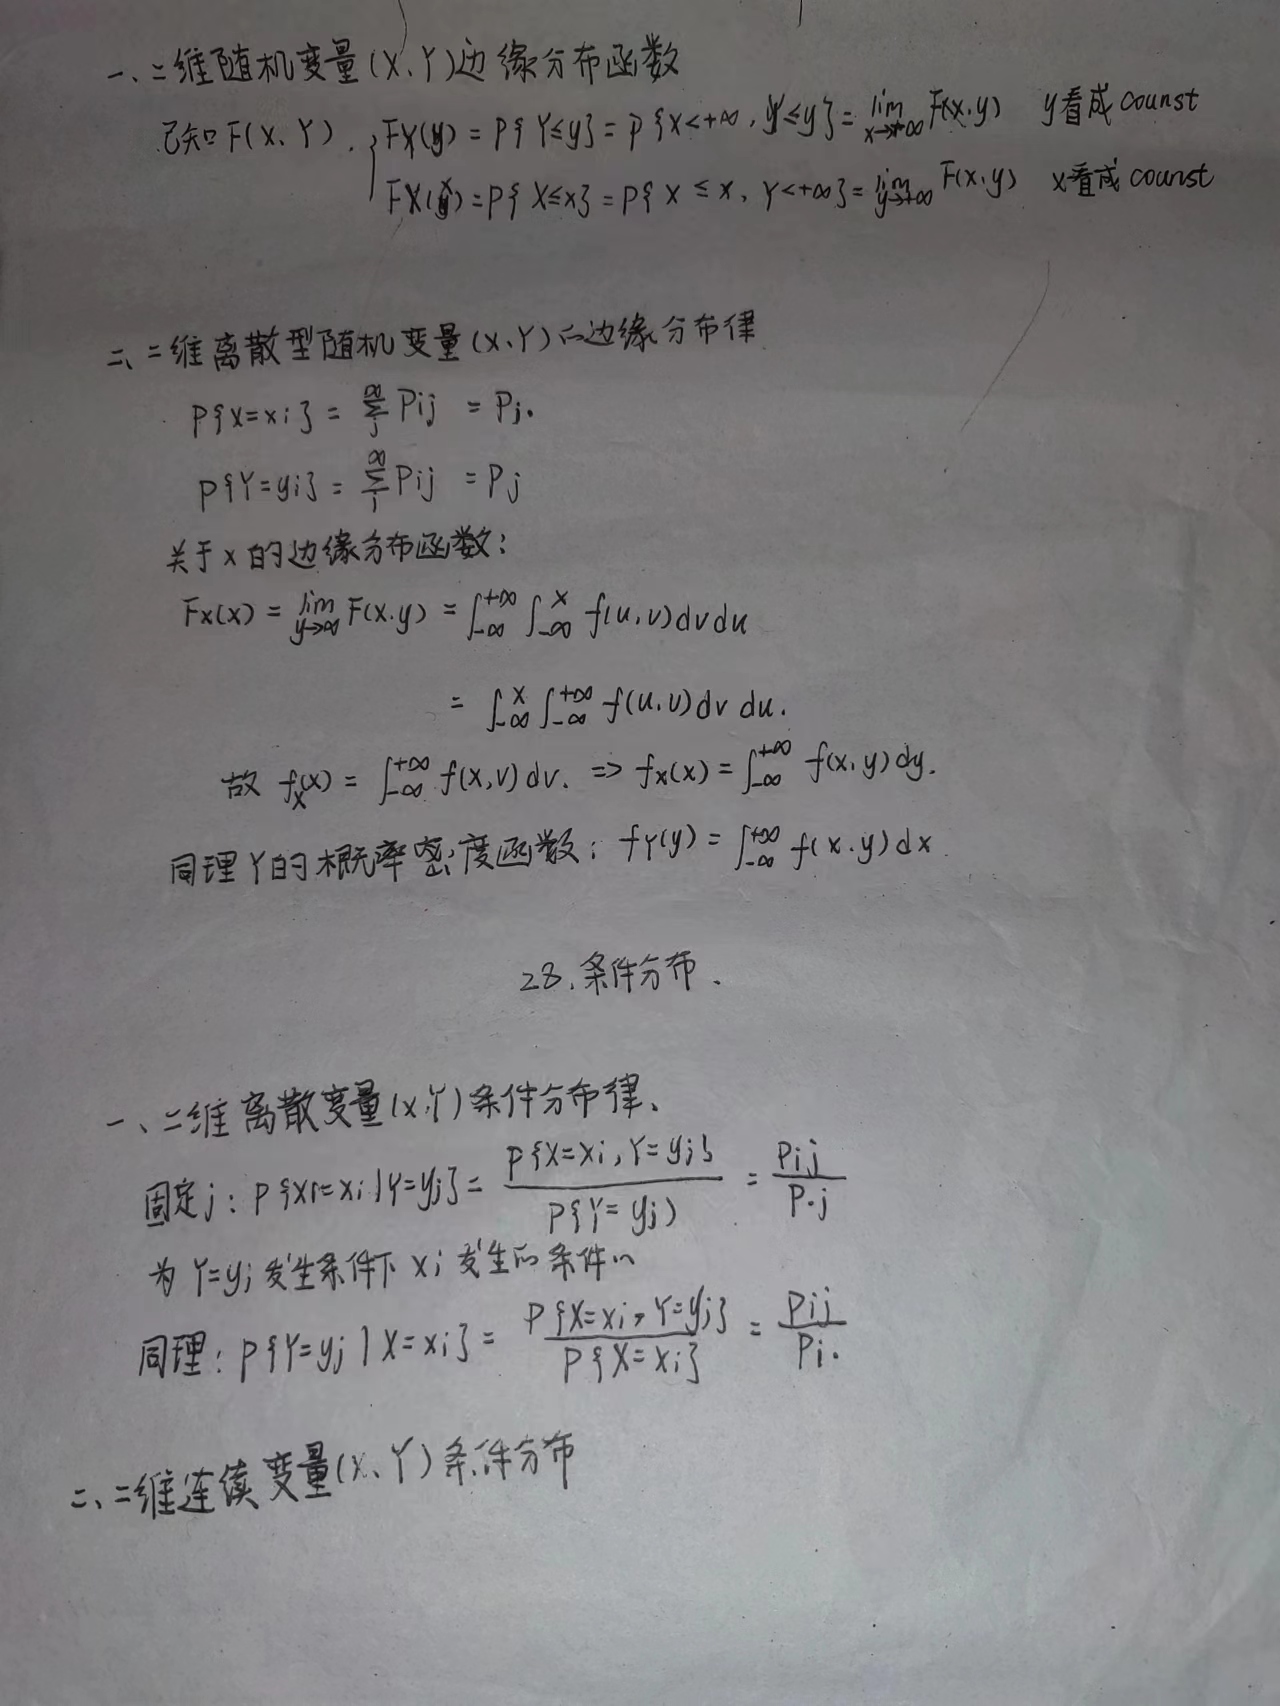 一、二维随机变量(X、Y)边缘分布函数
已知F(X、Y). { FY(y) = P{Y≤y} = P{X<+∞, Y≤y} = lim x→+∞ F(x,y) y看成counst
FX(x) = P{X≤x} = P{X≤x, Y<+∞} = lim y→+∞ F(x,y) x看成counst
二、二维离散型随机变量(X、Y)的边缘分布律
P{X=xi} = ∞∑j Pij = Pi.
P{Y=yi} = ∞∑i Pij = Pj
关于x的边缘分布函数:
Fx(x) = lim y→∞ F(x,y) = ∫_{-∞}^{+∞} ∫_{-∞}^{x} f(u,v)dvdu
= ∫_{-∞}^{x} ∫_{-∞}^{+∞} f(u,v)dvdu.
故 fX(x) = ∫_{-∞}^{+∞} f(x,v)dv. => fx(x) = ∫_{-∞}^{+∞} f(x,y)dy.
同理Y的概率密度函数: fY(y) = ∫_{-∞}^{+∞} f(x,y)dx
28.条件分布.
一、二维离散变量(X,Y)条件分布律、
固定j: P{X=xi|Y=yj} = P{X=xi,Y=yj} / P{Y=yj) = Pij / P·j
为Y=yj发生条件下xi发生的条件
同理: P{Y=yj|X=xi} = P{X=xi,Y=yj} / P{X=xi} = Pij / Pi.
二、二维连续变量(X、Y)条件分布